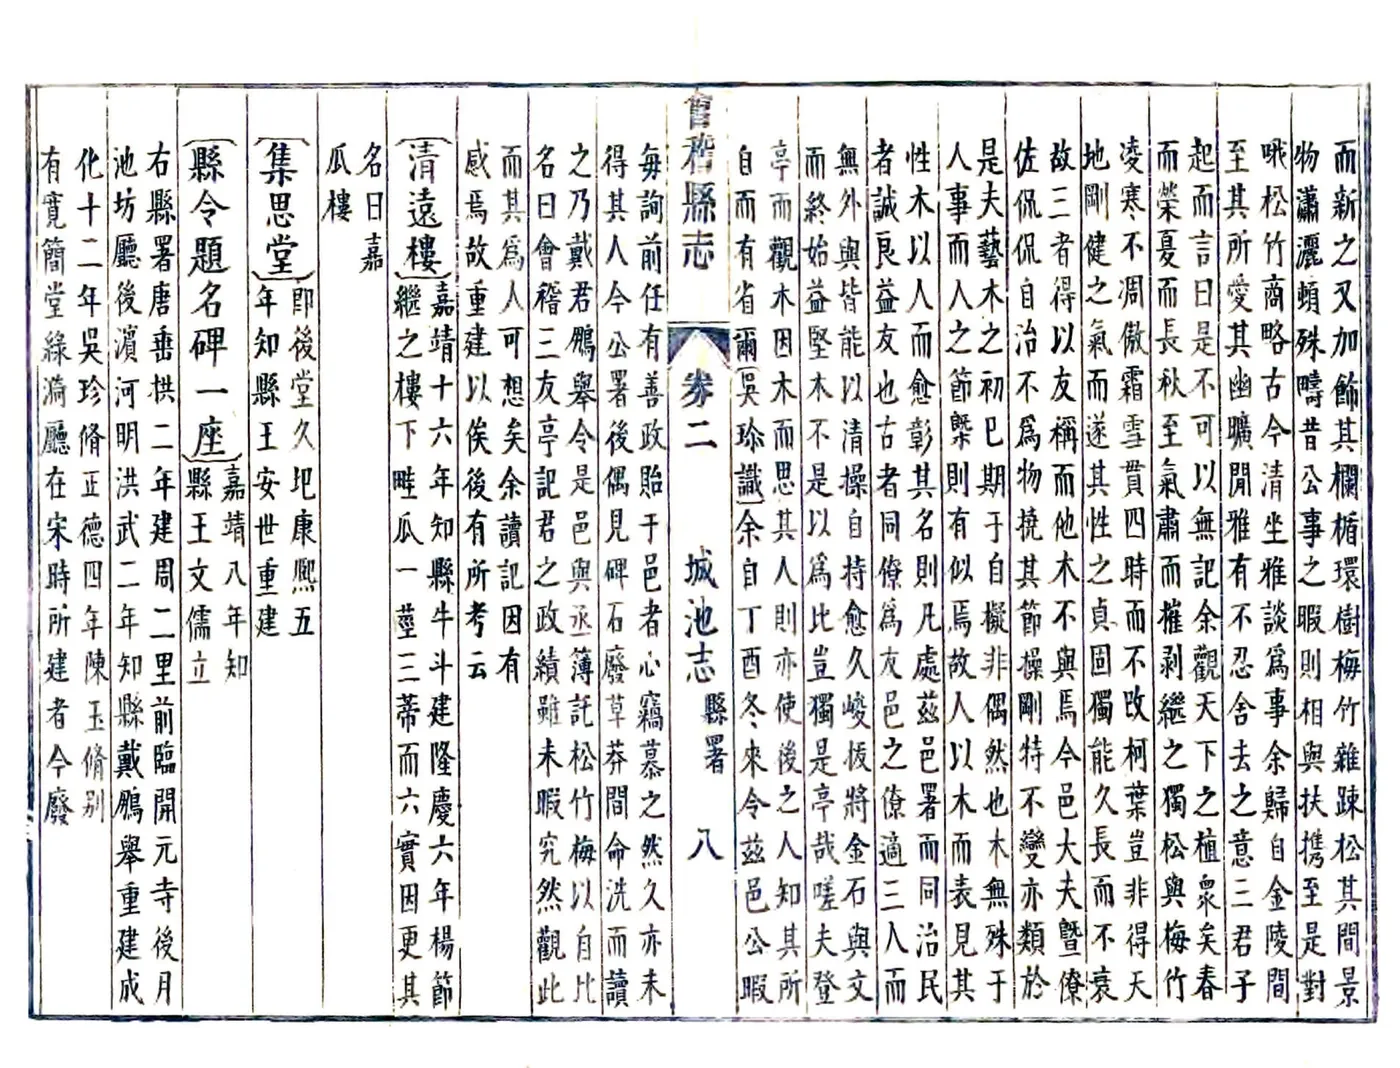 而新之又加飾其欄楯環樹梅竹雜踈松其間景
物瀟灑蛸殊疇昔公事之暇則相與扶携至是對
哦松竹商略古今清坐雅談爲事余歸自金陵間
至其所愛其幽曠閒雅有不忍舍去之意三君子
起而言曰是不可以無記余觀天下之植衆矣春
而榮夏而長秋至氣肅而摧剥繼之獨松與梅竹
凌寒不凋傲霜雪貫四時而不改柯葉豈非得天
地剛健之氣而遂其性之貞固獨能久長而不衰
故三者得以友稱而他木不與焉今邑大夫暨僚
佐侃侃自治不爲物撓其節操剛特不變亦類於
是夫藝木之初已期于自擬非偶然也木無殊于
人事而人之節槩則有似焉故人以木而表見其
性木以人而愈彰其名則凡處茲邑署而同治民
者誠良益友也古者同僚爲友邑之僚適三人而
無外與皆能以清操自持愈久峻拔將金石與文
而終始益堅木不是以爲比豈獨是亭哉嗟夫登
亭而觀木因木而思其人則亦使後之人知其所
自而有省爾吳珎識余自丁酉冬來令茲邑公暇
會稽縣志 卷二 城池志 縣署 八
每詢前任有善政貽于邑者心竊慕之然久亦未
得其人今公署後偶見碑石廢草莽間命洗而讀
之乃戴君鵬舉令是邑與丞簿託松竹梅以自比
名曰會稽三友亭記君之政績雖未暇究然觀此
而其爲人可想矣余讀記因有
感焉故重建以俟後有所考云
清遠樓
嘉靖十六年知縣牛斗建隆慶六年楊節
繼之樓下畦瓜一莖三蒂而六實因更其
名曰嘉
瓜樓
集思堂
即後堂久圯康熙五
年知縣王安世重建
縣令題名碑一座
嘉靖八年知
縣王文儒立
右縣署唐垂拱二年建周二里前臨開元寺後月
池坊廳後濱河明洪武二年知縣戴鵬舉重建成
化十二年吳珍脩正德四年陳玉脩别
有寛簡堂綠漪廳在宋時所建者今廢